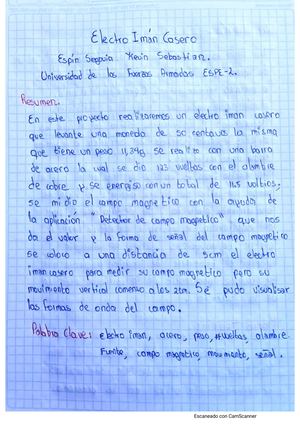 Electro Imán Casero
Espín Segovia Kevin Sebastian.
Universidad de las Fuerzas Armadas ESPE-L.
Resumen.
En este proyecto realizaremos un electro iman casero
que levante una moneda de 50 centavos la misma
que tiene un peso 11,34g. se realizo con una barra
de acero la cual se dio 123 vueltas con el alambre
de cobre y se energiso con un total de 11.5 voltios,
se midio el campo magnetico con la ayuda de
la aplicación "Detector de campo magnetico". que nos
da el valor y la forma de señal del campo magnetico
se coloco a una distancia de 5cm el electro
iman casero para medir su campo magnetico pero su
movimiento vertical comenzo a los 2cm. Se pudo visualisar
las formas de onda del campo.
Palabra Clave: electro iman, acero, peso, #vueltas, alambre
Fuente, campo magnetico, movimiento, señal.
Escaneado con CamScanner